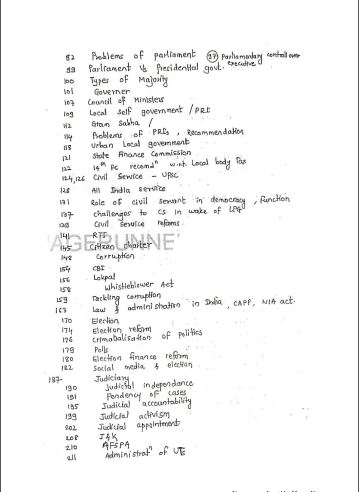 92 Problems of parliament (97) Parliamentary control over executive
99 Parliament Vs Presidential govt.
100 Types of Majority
101 Governer
107 Council of Ministers
109 Local Self government / PRI
112 Gram Sabha /
114 Problems of PRIs, Recommendation
118 Urban Local government
121 State Finance Commission
122 14th FC recomdn w.r.t. Local body Tax
124,126 Civil Service - UPSC
128 All India service
131 Role of civil servant in democracy, function
137 challenges to CS in wake of LPG
139 Civil Service reforms
141 RTI
145 Citizen charter
AGERUNNE
148 Corruption
154 CBI
156 Lokpal
158 Whistleblower Act
159 Tackling corruption
163 Law & administration in India, CAPF, NIA act.
170 Election
174 Election reform
176 Crimabalisation of Politics
179 Polls
180 Election finance reform
182 Social media & election
187- Judiciary
190 Judicial independance
191 Pendency of cases
195 Judicial accountability
199 Judicial activism
202 Judicial appointment
208 J&K
210 AFSPA
211 Administratn of UTs